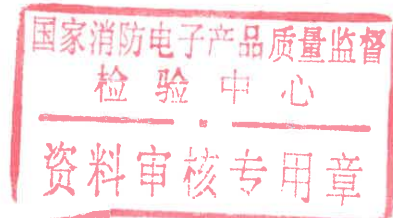 国家消防电子产品质量监督
检验中心
资料审核专用章